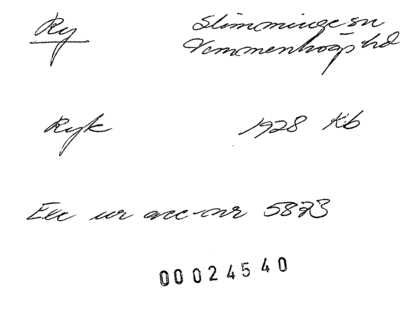 Ry Slimminge sn
Vemmenhögs hd
Ryk 1928 Kb
Exc ur acc-nr 5873
00024540